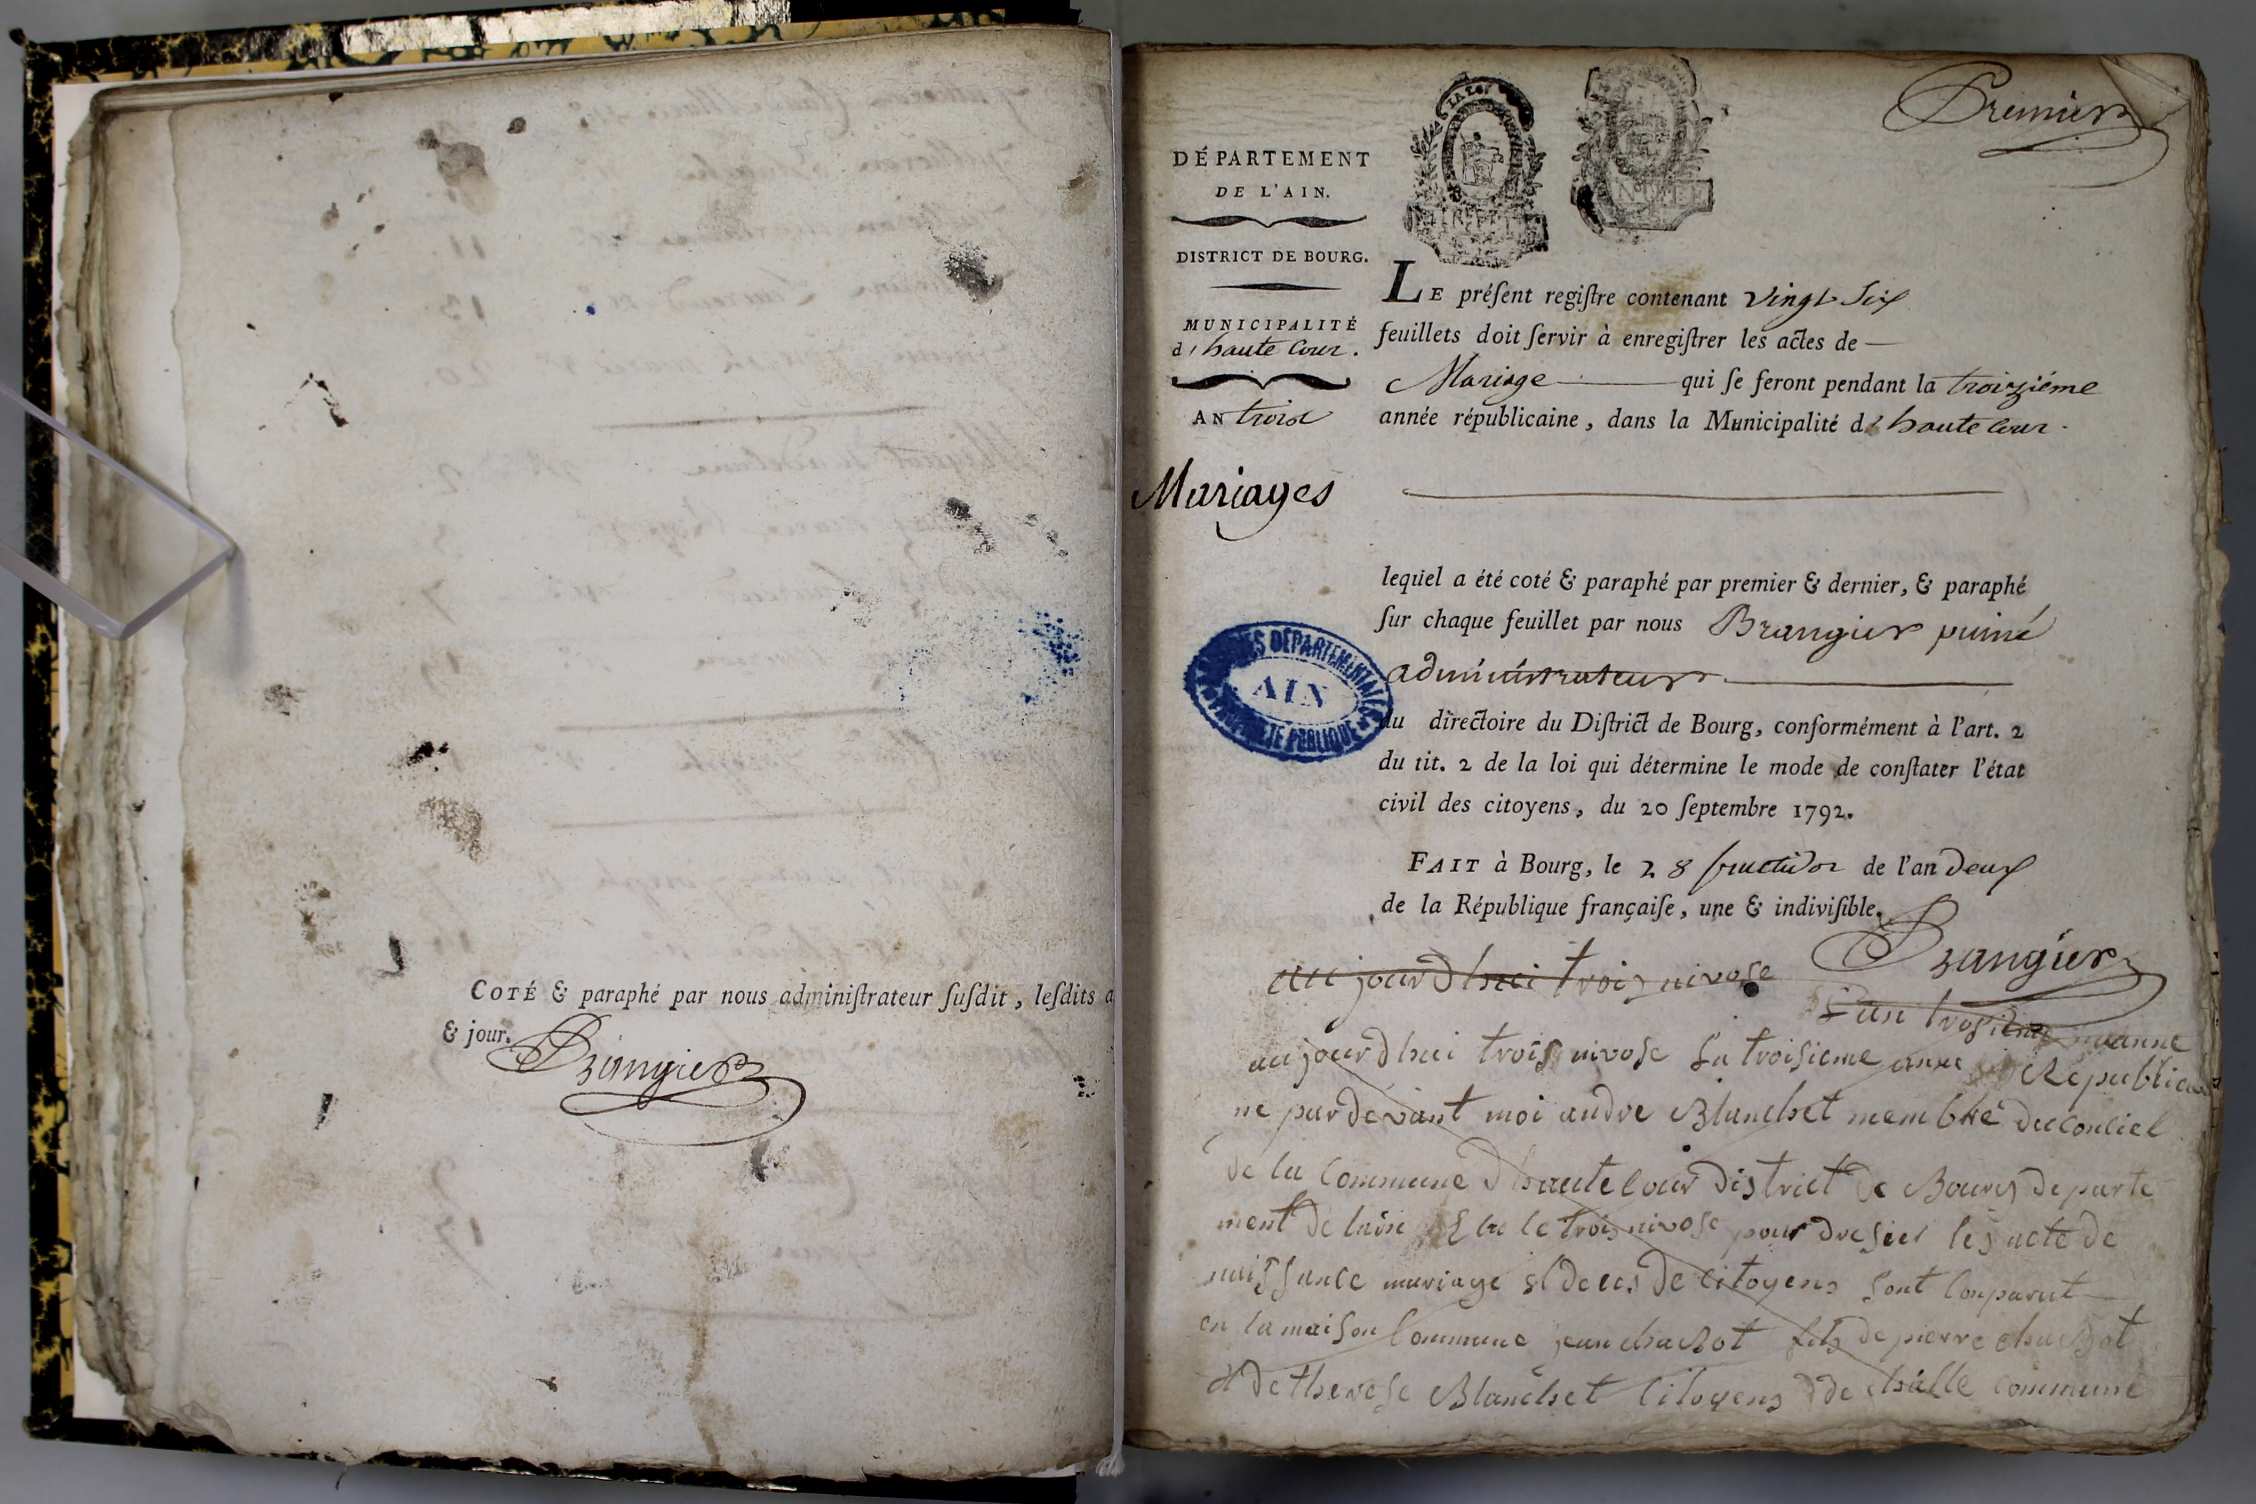 COTÉ & paraphé par nous adminiſtrateur ſuſdit, leſdits a
& jour.
Brangier
Premier
DÉPARTEMENT
DE L'AIN.
DISTRICT DE BOURG.
MUNICIPALITÉ
d'haute Cour.
AN trois
Mariages
LA LOI
ARCHIVES DÉPARTEMENTALES
AIN
PROPRIÉTÉ PUBLIQUE
LE préſent regiſtre contenant Vingt Six
feuillets doit ſervir à enregiſtrer les actes de
Mariage qui ſe feront pendant la troiziéme
année républicaine, dans la Municipalité d'haute Cour.
lequel a été coté & paraphé par premier & dernier, & paraphé
ſur chaque feuillet par nous Brangier puiné
administrateur
du directoire du Diſtrict de Bourg, conformément à l'art. 2
du tit. 2 de la loi qui détermine le mode de conſtater l'état
civil des citoyens, du 20 ſeptembre 1792.
FAIT à Bourg, le 28 fructidor de l'an deux
de la République françaiſe, une & indiviſible.
Brangier
aujourdhui trois nivose
Lan
aujourdhui trois nivose La troisieme anne Republicai
ne pardevant moi andre Blanchet membre du Conciel
de la Commune dhautecour district de Bourg departe
ment de lain Elu le trois nivose pour dresser les acte de
naissance mariage et deces de Citoyens sont Conparut
en la maison Commune jean chachot fils de pierre chachot
et de therese Blanchet Citoyens de challe commune